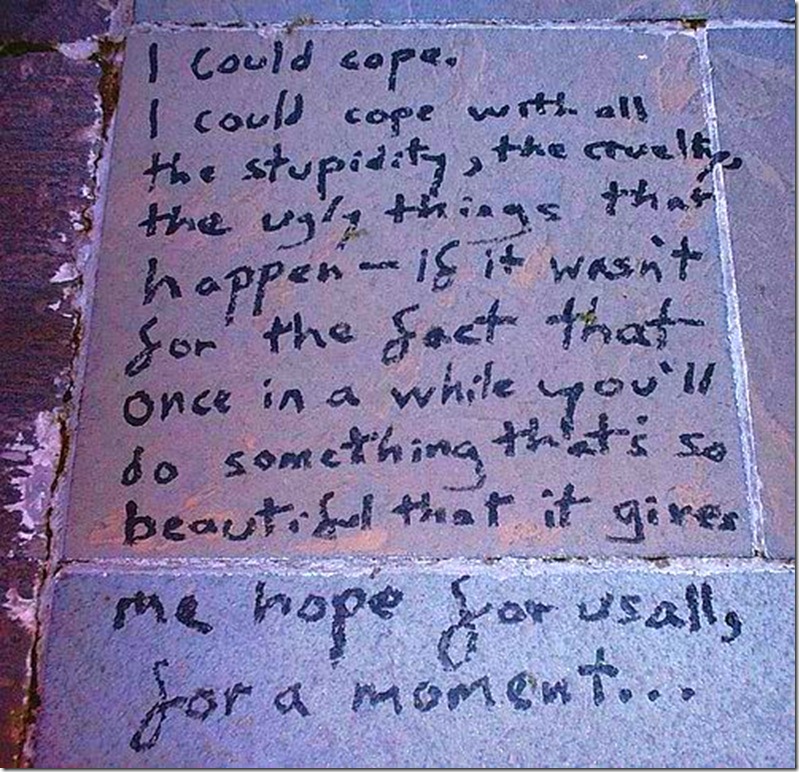 I could cope.
I could cope with all
the stupidity, the cruelty,
the ugly things that
happen - If it wasn't
for the fact that
once in a while you'll
do something that's so
beautiful that it gives
me hope for us all,
for a moment...